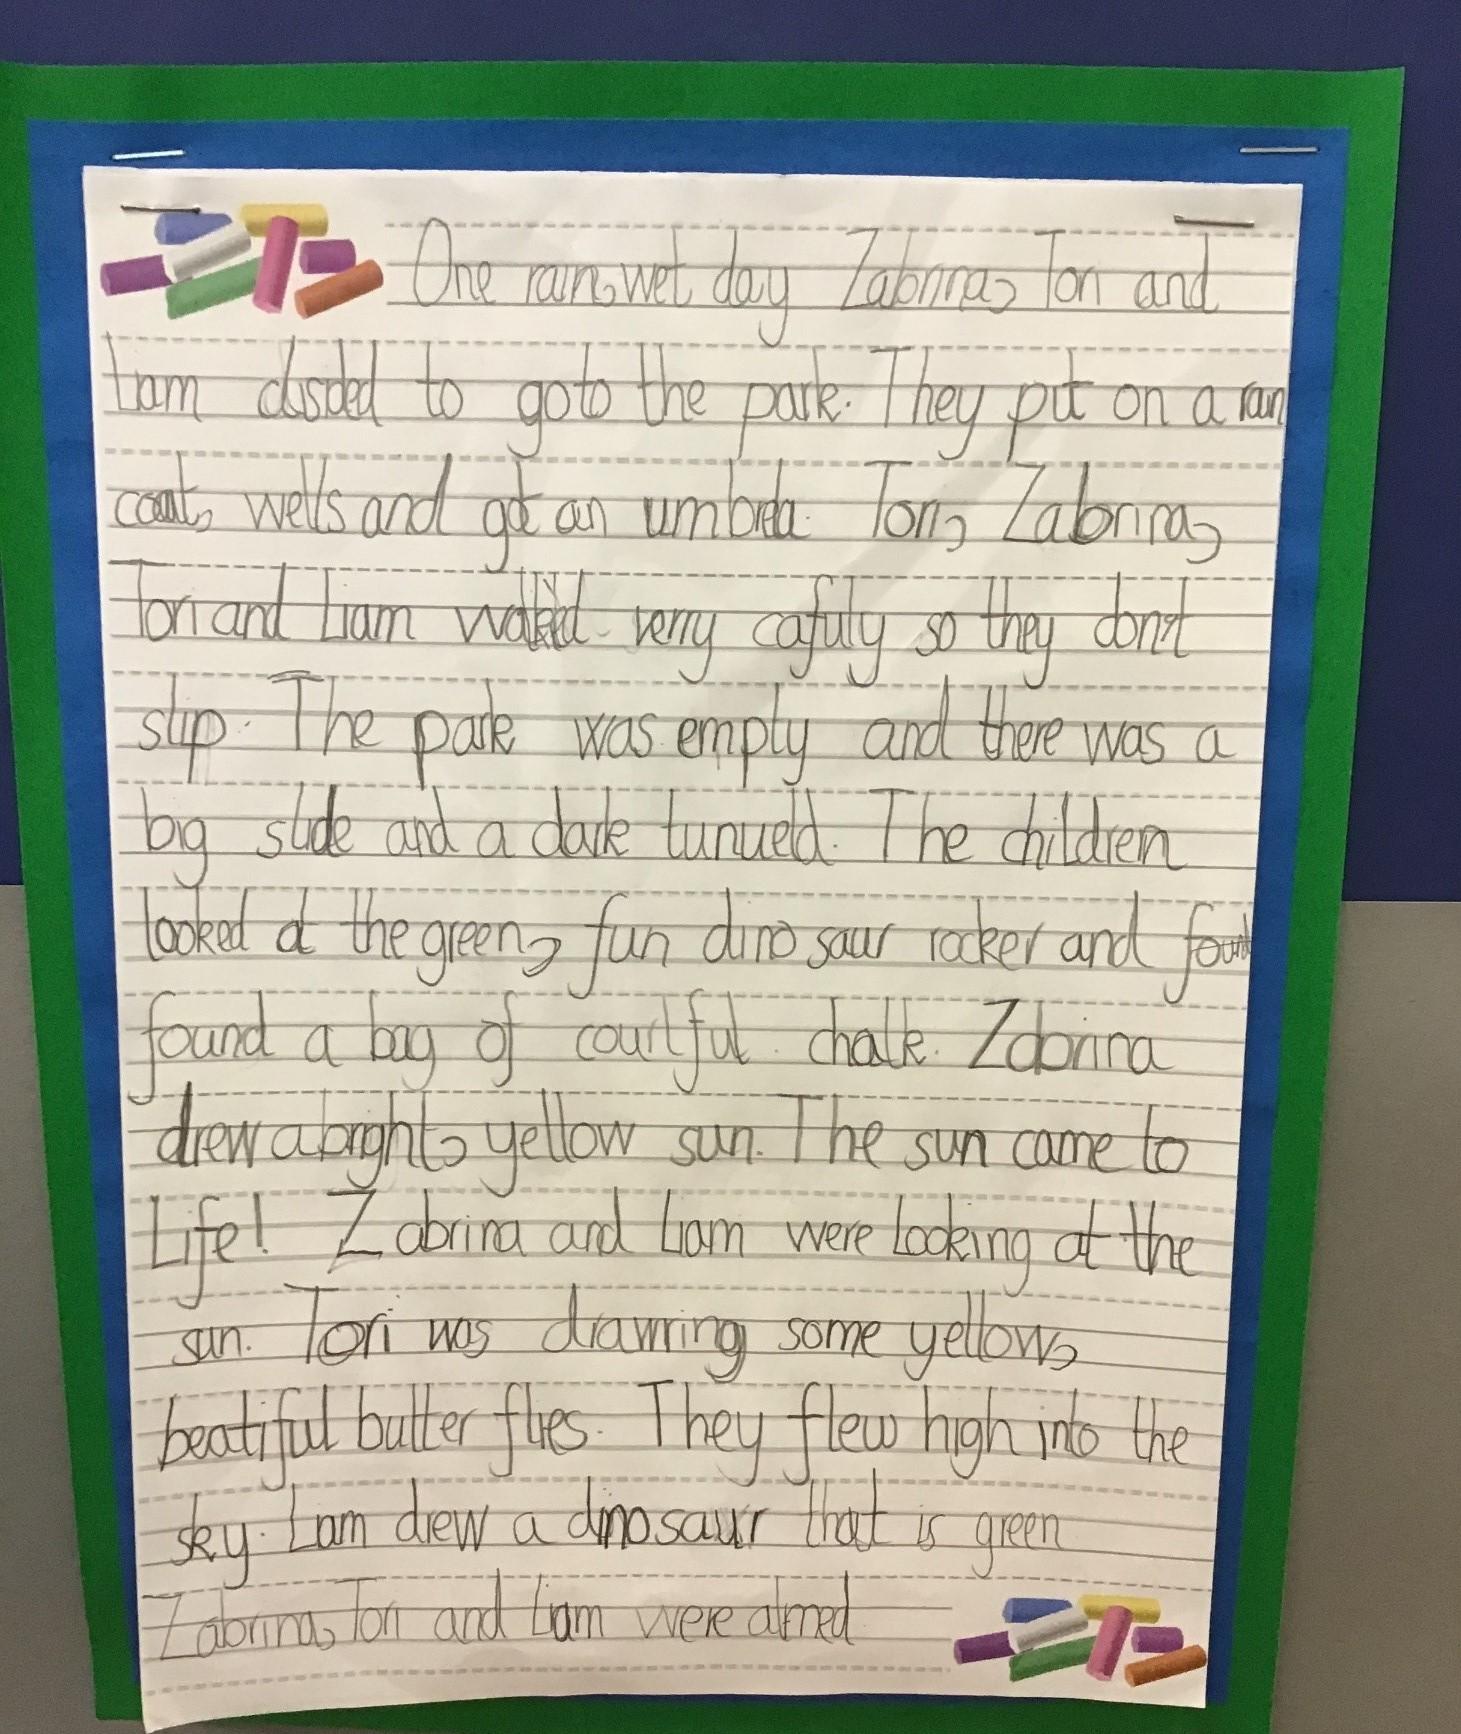 One rain, wet day Zabrina, Tori and
Liam disided to go to the park. They put on a rain
coat, wells and got an umbrela. Tori, Zabrina,
Tori and Liam walked verry cafuly so they don't
slip. The park was empty and there was a
big slide and a dark tunueld. The children
looked at the green, fun dino saur rocker and found
found a bag of courlful chalk. Zabrina
drew a bright, yellow sun. The sun came to
Life! Zabrina and Liam were Looking at the
sun. Tori was drawring some yellow,
beatiful butter flies. They flew high into the
sky. Liam drew a dinosaur that is green
Zabrina, Tori and Liam were almed